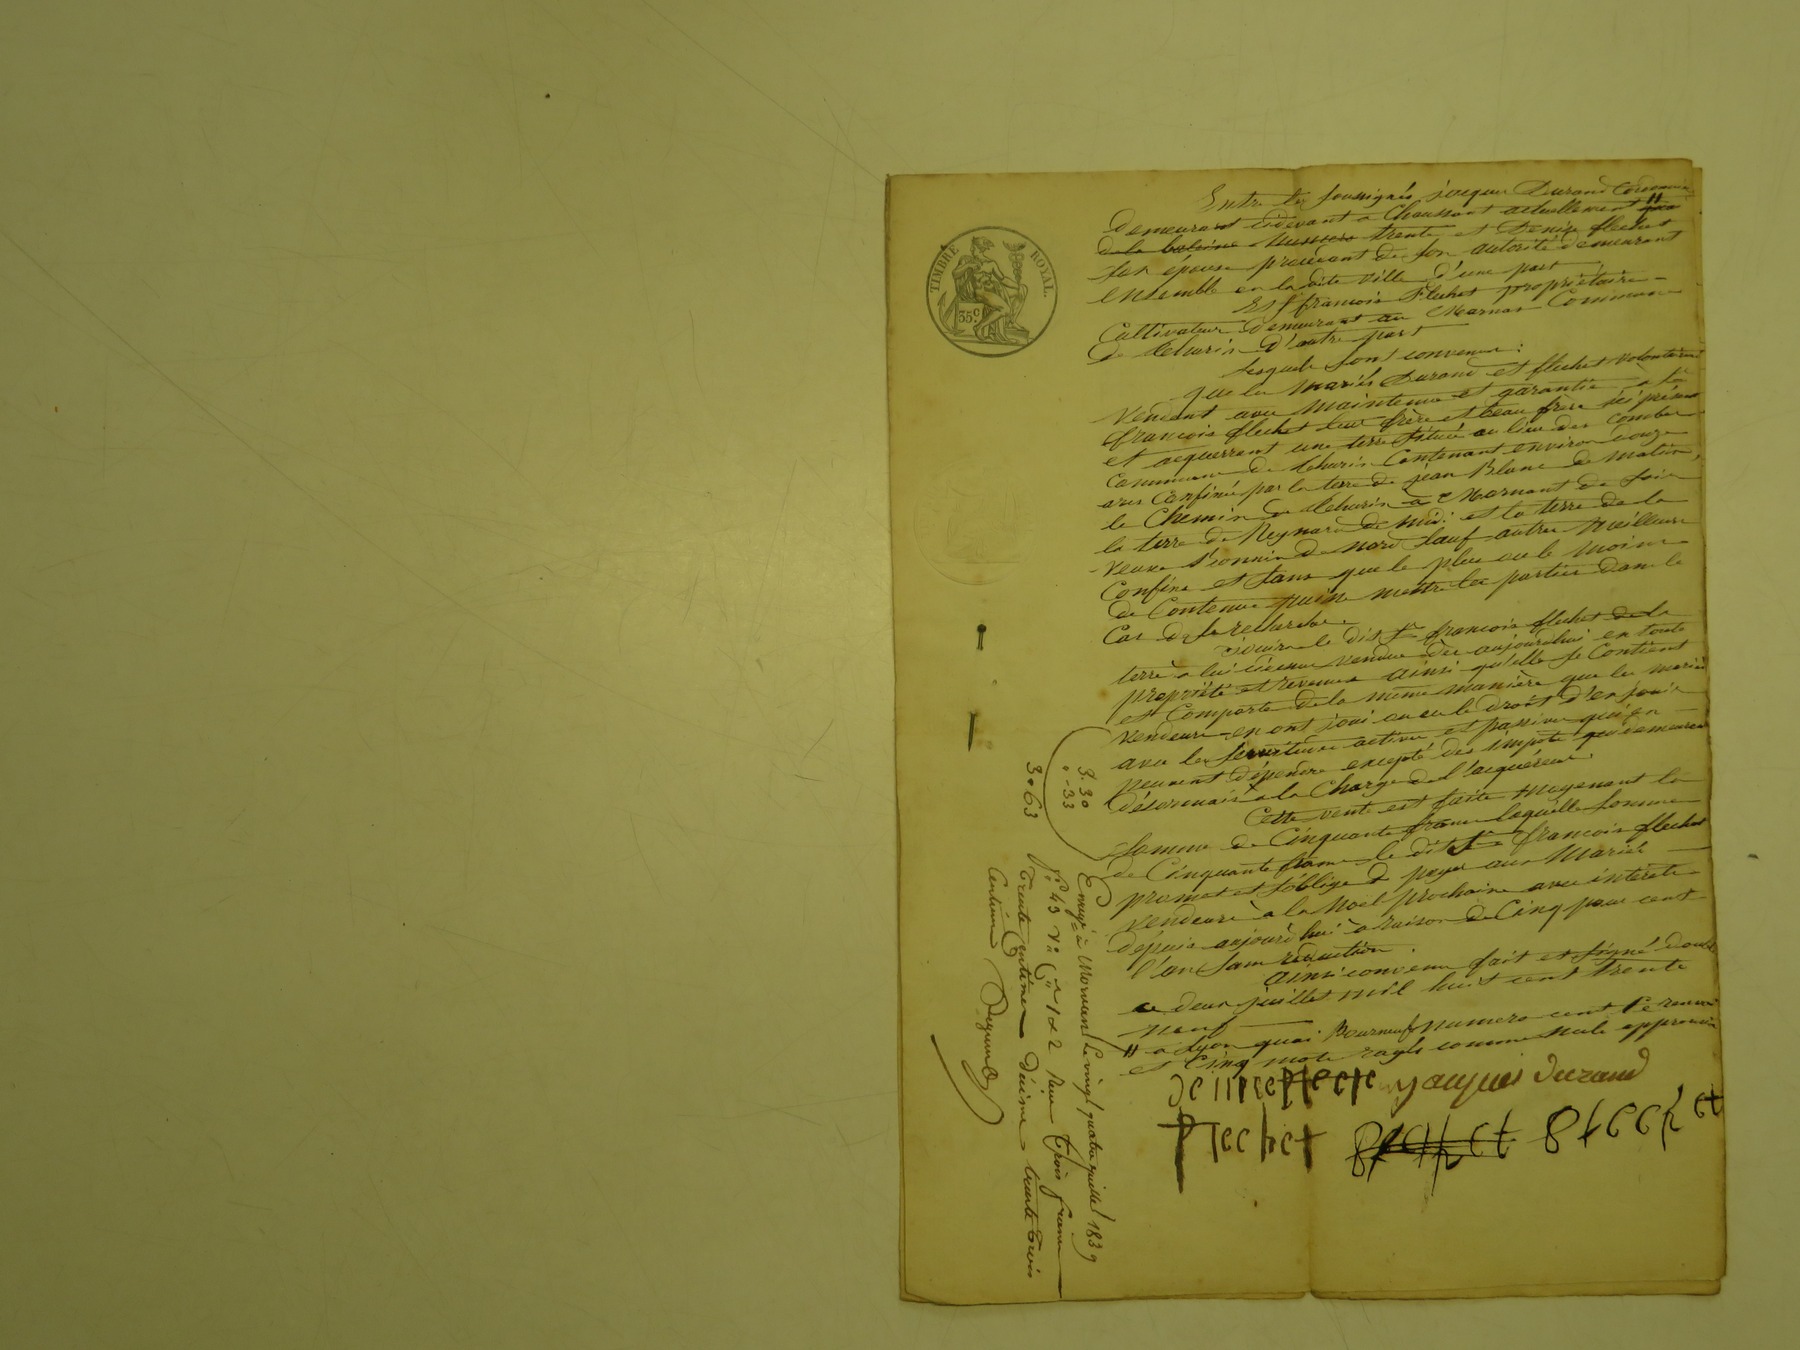 TIMBRE ROYAL.
35 c
Entre les soussignés jacques Durand Cordonnier
Demeurant cidevant a Chaussant actuellement " quai
de la baleine Numero trente et Denise flechet
son épouse procédant de son autorité demeurant
Ensemble en la dite ville d'une part
Et francois Flechet propriétaire
Cultivateur Demeurant au Marnas Commune
de thurin D'autre part
lesquels sont convenus :
que les Mariés Durand et flechet volontairement
Vendent avec Maintenue et garantie a Sr
francois flechet leur frère et beau frère ici présent
et acquerrant une terre située au lieu des combes
Commune de thurin Contenant environ douze
ares Confinée par la terre de jean Blanc de matin,
le Chemin de thurin à Mornant de soir
la terre de Reynard de midi et la terre de la
veuve de nord sauf autres Meilleurs
Confins et sans que le plus ou le moins
de Contenue puisse mettre les parties dans le
Cas de se rechercher
jouira le dit Sr francois flechet de la
terre a lui cidessus vendue dès aujourdhui en toute
propriété et revenus ainsi qu'elle se Contient
et Comporte de la même manière que les mariés
Vendeurs en ont joui ou eu le droit d'en jouir
avec les servitudes actives et passives qui en
peuvent dépendre excepté des impots qui demeurent
désormais a la Charge de l'acquéreur
Cette vente est faite moyenant la
Somme de Cinquante francs laquelle somme
de Cinquante francs le dit Sr francois flechet
promet et s'oblige de payer aux Mariés
Vendeurs à la Noel prochaine avec intérêts
depuis aujourd'hui à raison de Cinq pour cent
l'an sans réduction .
ainsi convenu fait et signé double
ce deux juillet mil huit cent trente
neuf
" a lyon quai Bourneuf numero cent Le renvoi
et Cinq mots rayés comme nuls approuvés
jacques durand
flechet
3. 30
" - 33
3.63
Enregé à Mornant le vingt quatre juillet 1839
fo 43 Vo Co 1 et 2 Reçu trois francs
trente centimes décime trente trois
Centimes